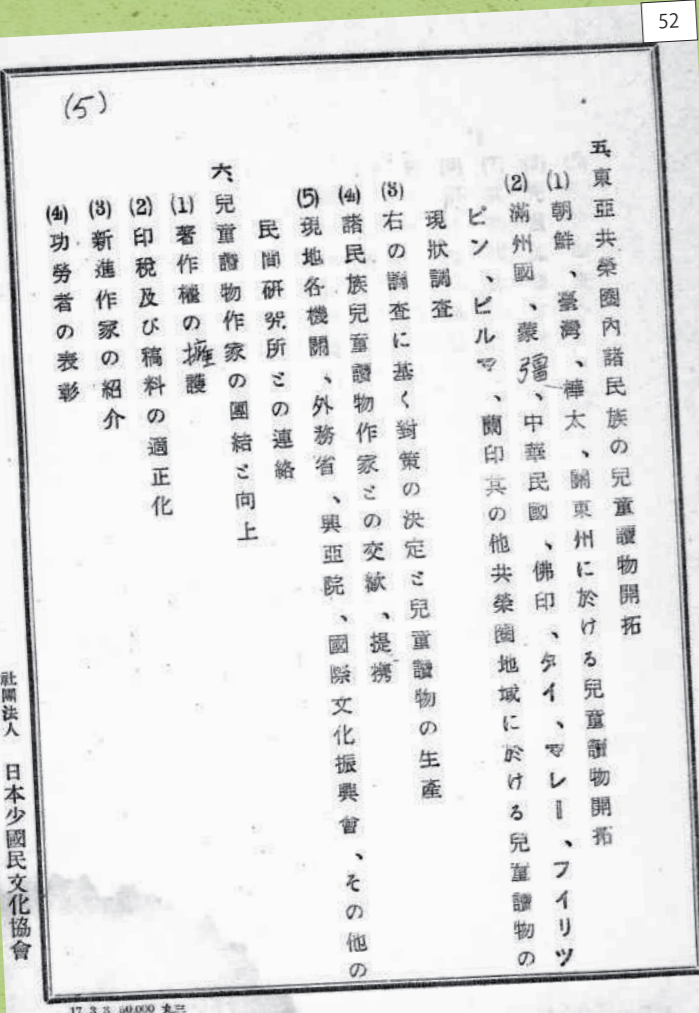 52
(5)
五、東亞共榮圈內諸民族の兒童讀物開拓
(1)朝鮮、臺灣、樺太、關東州に於ける兒童讀物開拓
(2)滿州國、蒙彊、中華民國、佛印、タイ、マレー、フイリツ
ピン、ビルマ、蘭印其の他共榮圈地域に於ける兒童讀物の
現狀調査
(3)右の調査に基く對策の決定と兒童讀物の生産
(4)諸民族兒童讀物作家との交歡、提携
(5)現地各機關、外務省、興亞院、國際文化振興會、その他の
民間硏究所との連絡
六、兒童讀物作家の團結と向上
(1)著作權の擁護
(2)印稅及び稿料の適正化
(3)新進作家の紹介
(4)功勞者の表彰
社團法人 日本少國民文化協會
17.3.5. 50,000